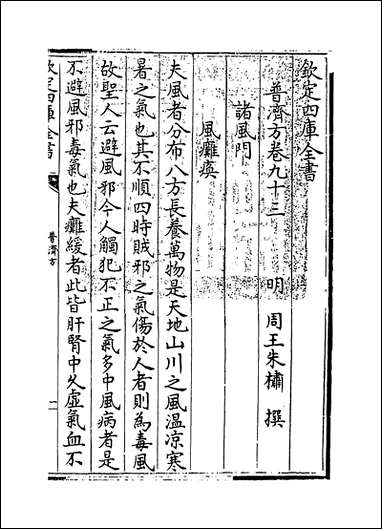 欽定四庫全書
普濟方卷九十三
明 周王朱橚 撰
諸風門
風癱瘓
夫風者分布八方長養萬物是天地山川之風温凉寒
暑之氣也其不順四時賊邪之氣傷於人者則為毒風
故聖人云避風邪今人觸犯不正之氣多中風病者是
不避風邪毒氣也夫癱緩者此皆肝腎中久虚氣血不
欽定四庫全書
普濟方
一